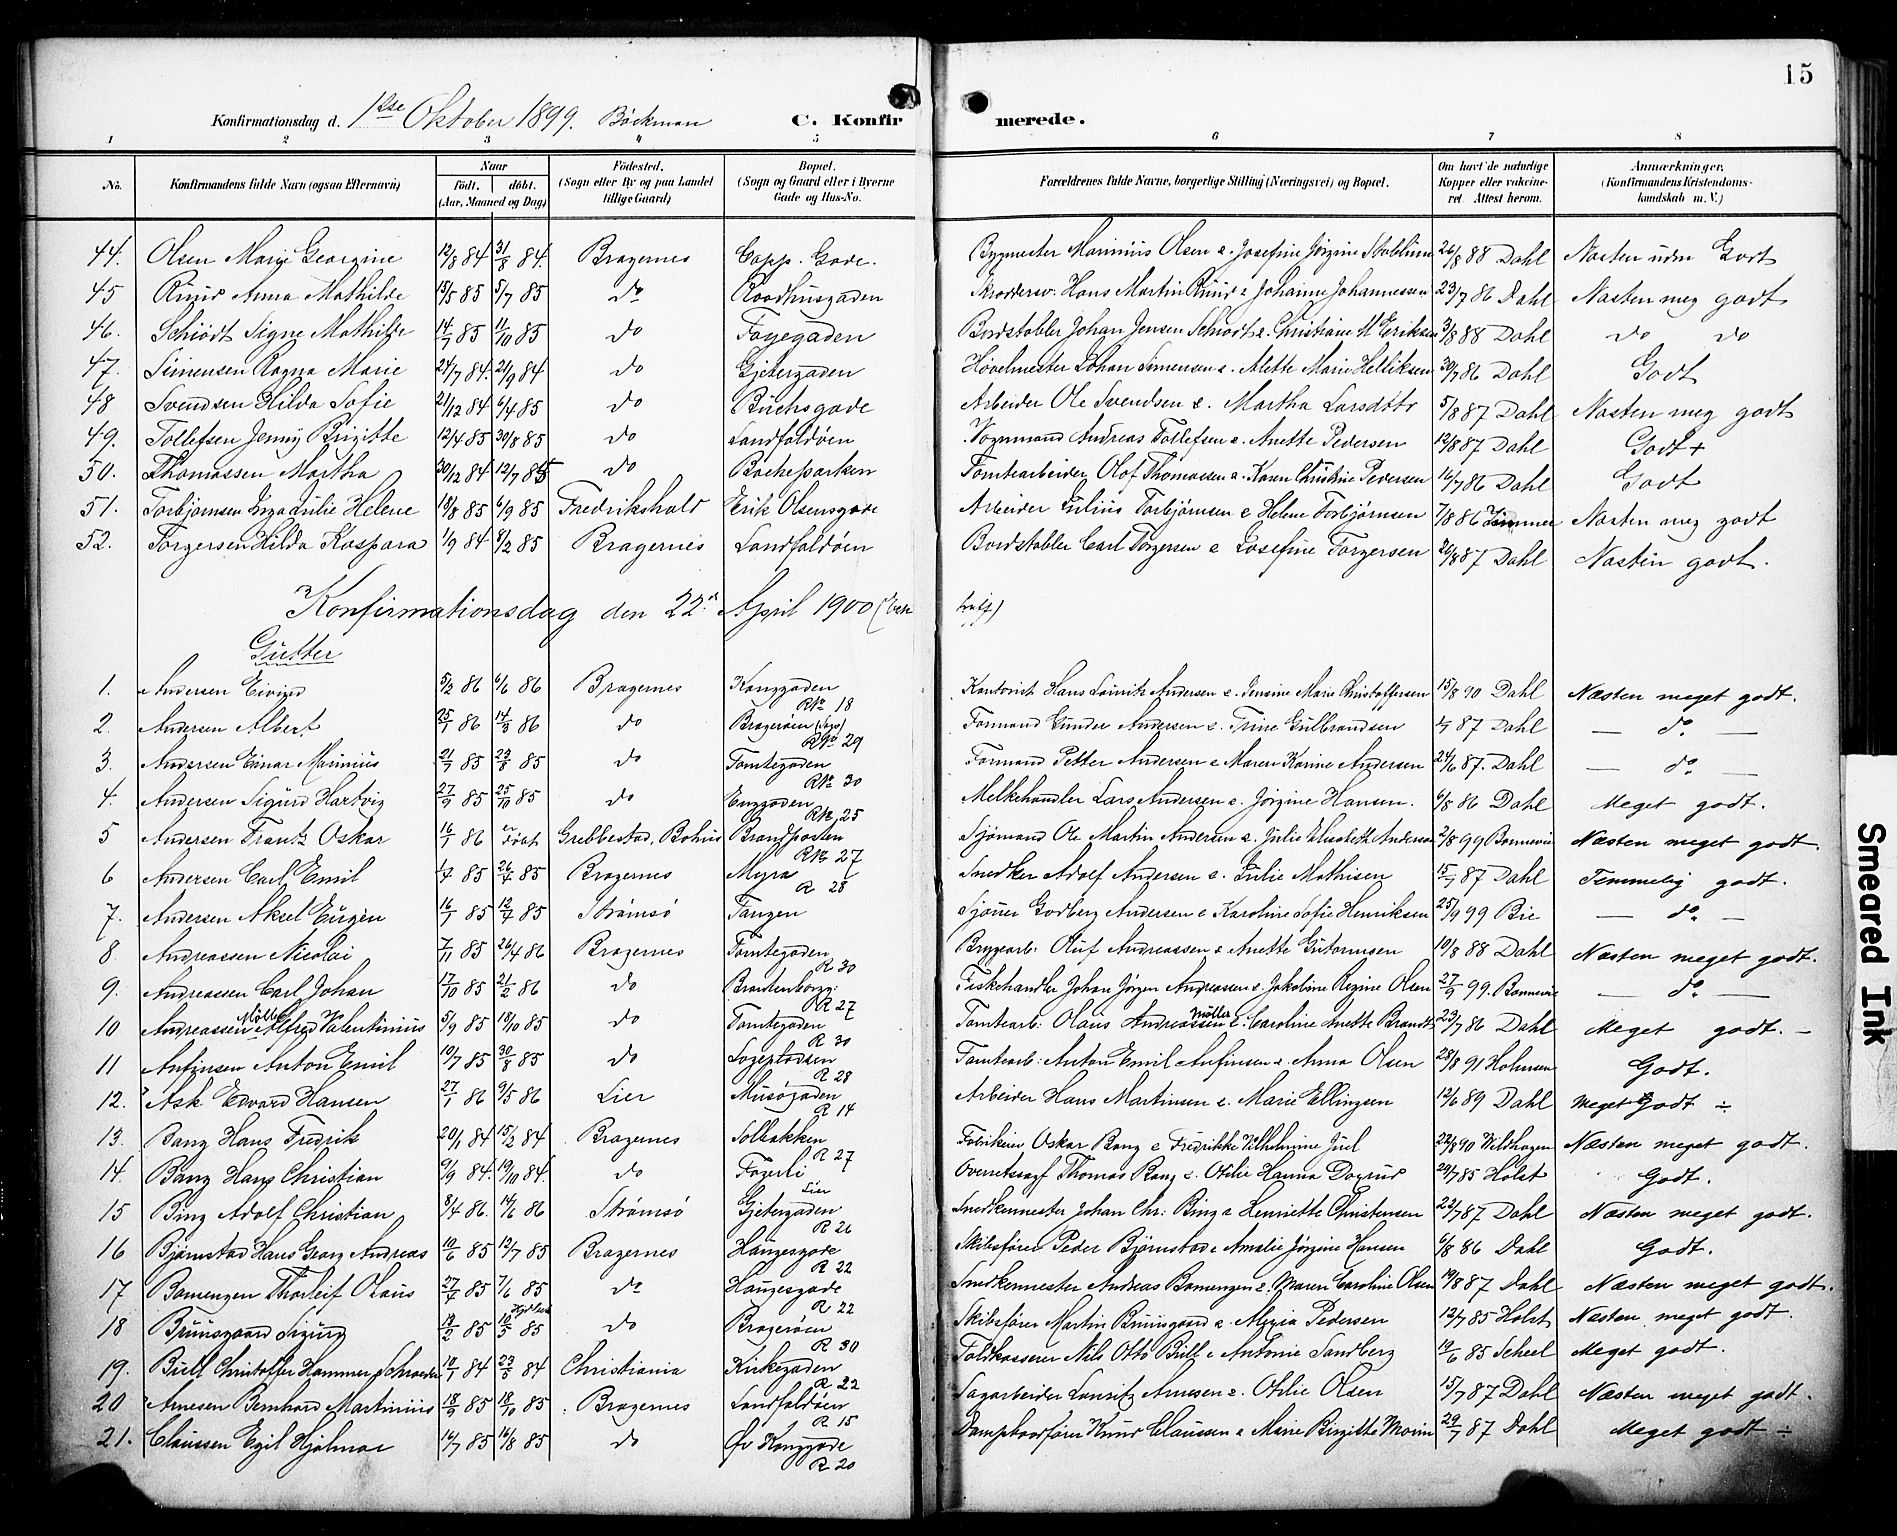 15
Konfirmationsdag d. 1ste Oktober 1899. Böckman C. Konfirmerede.
1 2 3 4 5 6 7 8
No. Konfirmandens fulde Navn (ogsaa Efternavn) Naar født. døbt. (Aar, Maaned og Dag) Fødested. (Sogn eller By og paa Landet tillige Gaard) Bopæl. (Sogn og Gaard eller i Byerne Gade og Hus-No. Forældrenes fulde Navne, borgerlige Stilling (Næringsvei) og Bopæl. Om havt de naturlige Kopper eller vaccineret. Attest herom. Anmærkninger. (Konfirmandens Kristendomskundskab m. V.)
44. Olsen Marie Georgine 12/8 84 31/8 84. Bragernes Capp. Gade. Bygmester Marinius Olsen & Josefine Jørgine 26/8 88 Dahl Næsten uden Godt
45 Ruud Anna Mathilde 15/5 85 5/7 85 do Raadhusgaden Skræddersv: Hans Martin Ruud & Johanne Johannessen 23/7 86 Dahl Næsten meg godt
46. Schiødt Signe Mathilde 14/7 85 11/10 85 do Fogegaden Bordstabler Johan Jensen Schiødt & Christiane M Eriksen 3/8 88 Dahl do do
47. Simensen Ragna Marie 24/7 84. 21/9 84 do Gjetergaden Høvelmester Johan Simensen & Alette Marie Helliksen 30/7 86 Dahl Godt
48 Svendsen Hilda Sofie 21/12 84 6/4 85 do Buchsgade Arbeider Ole Svendsen & Martha Larsdttr 5/8 87 Dahl Næsten meg godt
49. Tollefsen Jenny Birgitte 12/4 85 30/8 85 do Landfaldøen Vognmand Andreas Tollefsen & Anette Pedersen 12/8 87 Dahl Godt +
50. Thomassen Martha 20/12 84 12/7 85 do Bacheparken Tomtearbeider Olof Thomassen & Karen Christine Pedersen 16/7 86 Dahl Godt
51. Torbjørnsen Inga Julie Helene 18/8 85 6/9 85 Fredrikshald Erik Olsensgade Arbeider Julius Torbjørnsen & Helene Torbjørnsen 7/8 86 Næsten meg godt
52. Torgersen Hilda Kaspara 1/9 84 8/2 85 Bragernes Landfaldøen Bordstabler Carl Torgersen & Josefine Torgersen 20/8 87 Dahl Næsten godt.
Konfirmationsdag den 22. April 1900
Gutter
1. Andersen Eivind 5/2 86 6/6 86 Bragernes Konggaden RNo 18 Kontorist Hans Lauritz Andersen & Jensine Marie Christoffersen 15/8 90 Dahl Næsten meget godt.
2. Andersen Albert 25/1 86 14/3 86 do Bragerøen RNo 29 Formand Gunder Andersen & Trine Gulbrandsen 87 Dahl — do —
3. Andersen Einar Marinius 21/7 85 23/8 85 do Tomtegaden RNo 30 Formand Petter Andersen & Maren Karine Andersen 24/6 87. Dahl — do —
4. Andersen Sigurd Hartvig 27/9 85 25/10 85 do Enggaden RNo 25 Melkehandler Lars Andersen & Jørgine Hansen. 6/8 86 Dahl Meget godt.
5 Andersen Frantz Oskar 16/1 86 er døbt Grebbestad, Bohus Brandposten RNo 27 Sjømand Ole Martin Andersen & Julie Elisabeth Andersen 2/8 99 Bonnevie Næsten meget godt.
6 Andersen Carl Emil 85 26/7 85 Bragernes Myra R 28 Snedker Adolf Andersen & Julie Mathisen 15/7 87 Dahl Temmelig godt.
7. Andersen Aksel Eugen 16/1 85 12/7 85 Strømsø Tangen Sjouer Godberg Andersen & Karoline Sofie Henriksen 25/9 99 Bie — do —
8. Andreassen Nicolai 7/11 85 26/4 86 Bragernes Tomtegaden R 30 Bryggearb: Oluf Andreassen & Anette Gutormsen 10/8 88 Dahl Næsten meget godt.
9. Andreassen Carl Johan 17/10 85 21/2 86 do Brantenborgg: R 27 Fiskehandler Johan Jörgen Andreassen & Jakobine Regine Olsen 27/9 99. Bonnevie — do —
10 Andreassen Møller Alfred Valentinius 5/9 85 18/10 85 do Tomtegaden R 30 Tomtearb: Olaus Andreassen Møller & Caroline Anette Brandt 23/7 86 Dahl Meget godt. —
11 Anfinsen Anton Emil 10/7 85 30/8 85 do R 28 Tomtearb: Anton Emil Anfinsen & Anna Olsen 28/8 91 Holmsen Godt.
12. Ask Edvard Hansen 27/1 86 9/5 86 Lier Musøgaden R 14 Arbeider Hans Martinsen & Marie Ellingsen 12/6 89 Dahl Meget Godt ÷
13. Bang Hans Fredrik 20/1 84 15/2 84 Bragernes Solbakken R 27 Fabrikeier Oskar Bang & Fredrikke Wilhelmine Juel 22/8 90 Wildhagen Næsten meget godt.
14. Bang Hans Christian 9/9 84. 19/10 84. do Fagerli Lier Overretssagf Thomas Bang & Otilie Hanna 29/7 85 Holst Godt.
15 Bing Adolf Christian 8/4 86. 14/6 86 Strømsø Gjetergaden R 26 Snedkermester Johan Chr: Bing & Henriette Christensen 23/7 87 Dahl Næsten meget godt.
16 Bjørnstad Hans Georg Andreas 10/6 85 12/7 85 Bragernes Haugesgade R 22 Skibsfører Peder Bjørnstad & Amalie Jørgine Hansen 6/8 86 Dahl Godt.
17 Bamengen Thorleif Olaus 27/4 85 7/6 85 do Haugesgade R 22 Snedkermester Andreas Bamengen & Maren Caroline Olsen 19/8 87 Dahl Næsten meget godt.
18 Bruusgaard Sigurd 85 10/5 85 do Bragerøen R 30 Skibsfører Martin Bruusgaard & Pedersen 12/7 85 Holst Næsten meget godt.
19. Bull Christoffer Hammer Schroeder 10/1 84 23/3 84 Christiania Kirkegaden R 22 Toldkasserer Nils Otto Bull & Antonie Sandberg 19/6 85 Scheel Meget godt.
20 Arnesen Bernhard Martinius 18/9 85 18/10 85 Bragernes Landfaldøen R 15 Sagarbeider Lauritz Arnesen & Otilie Olsen 15/7 87 Dahl Næsten meget godt.
21. Claussen Egil Hjalmar 16/7 85 16/8 85 do Øv Konggade R 20 Dampbaadfører Knud Claussen & Marie Birgitte 29/7 87 Dahl Meget godt ÷
Smeared Ink